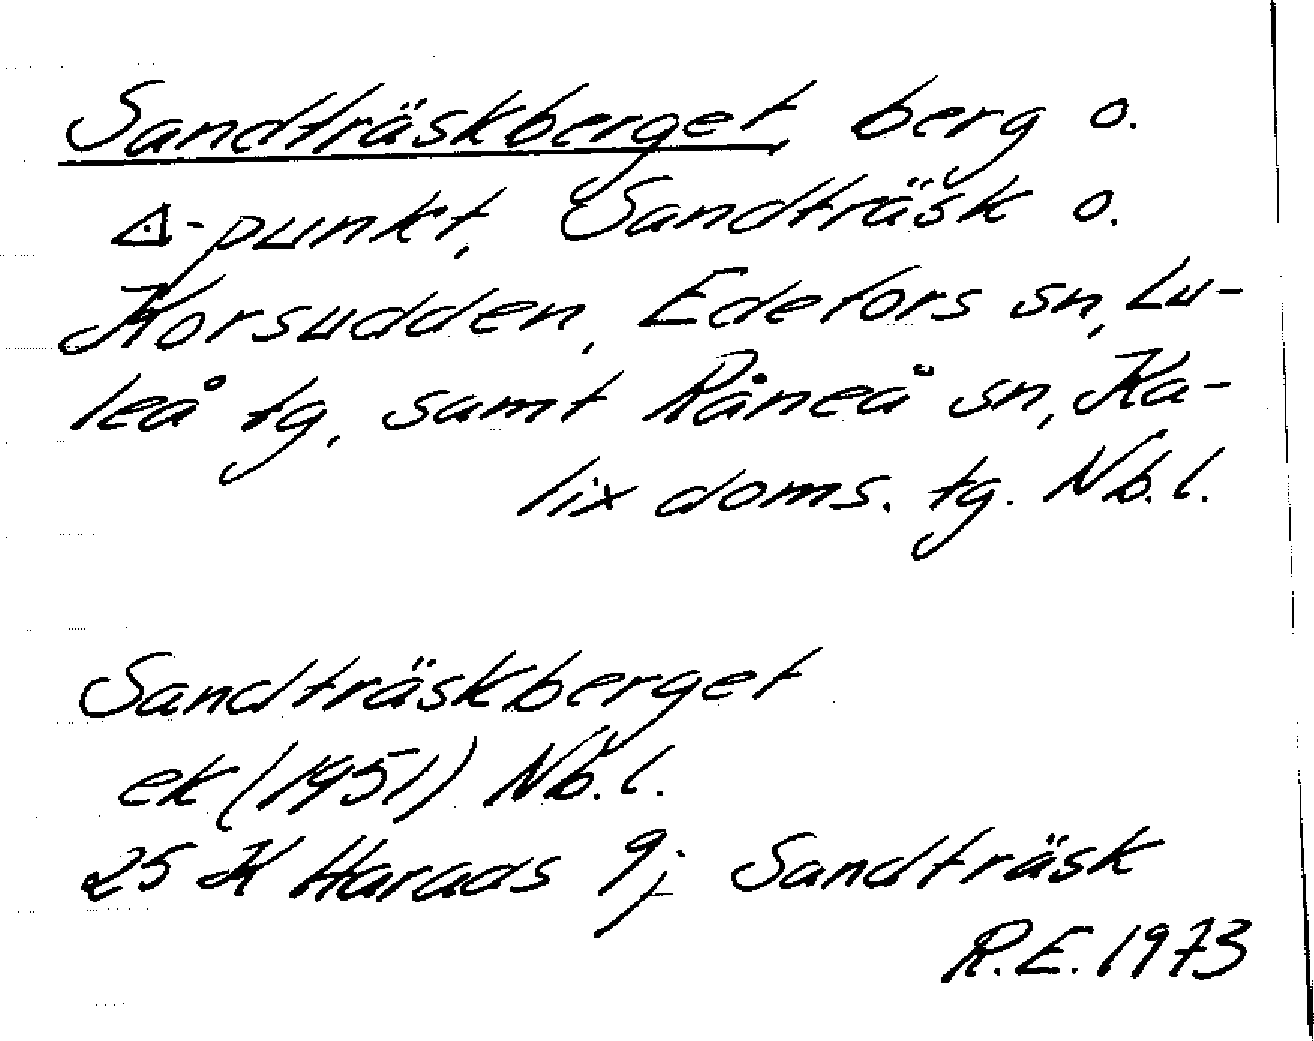 Sandträskberget, berg o.
△-punkt, Sandträsk o.
Korsudden, Edefors sn, Lu-
leå tg, samt Råneå sn, Ka-
lix doms. tg. Nb.l.
Sandträskberget
ek (1951) Nb.l.
25 K Harads 9j Sandträsk
R.E. 1973